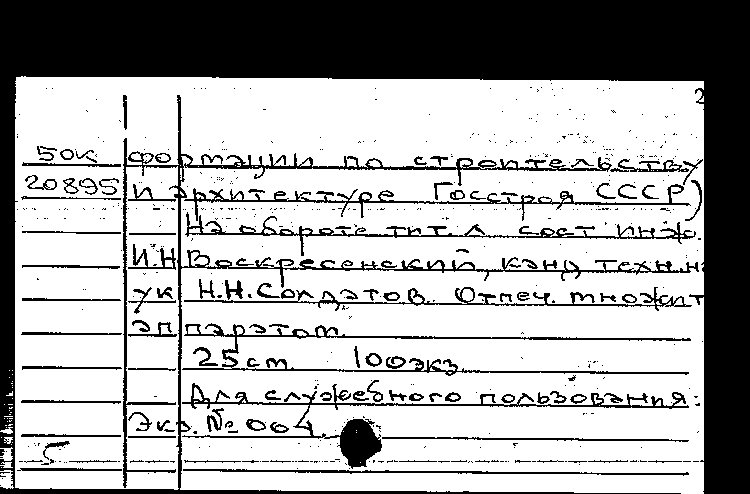 2
50к формации по строительству
20895 и архитектуре Госстроя СССР)
На обороте тит. л. сост. инж.
И.Н. Воскресенский, канд. техн. на
ук Н.Н. Солдатов. Отпеч. множит
аппаратом.
25 см. 100 экз.
Для служебного пользования.
Экз. № 004.
5